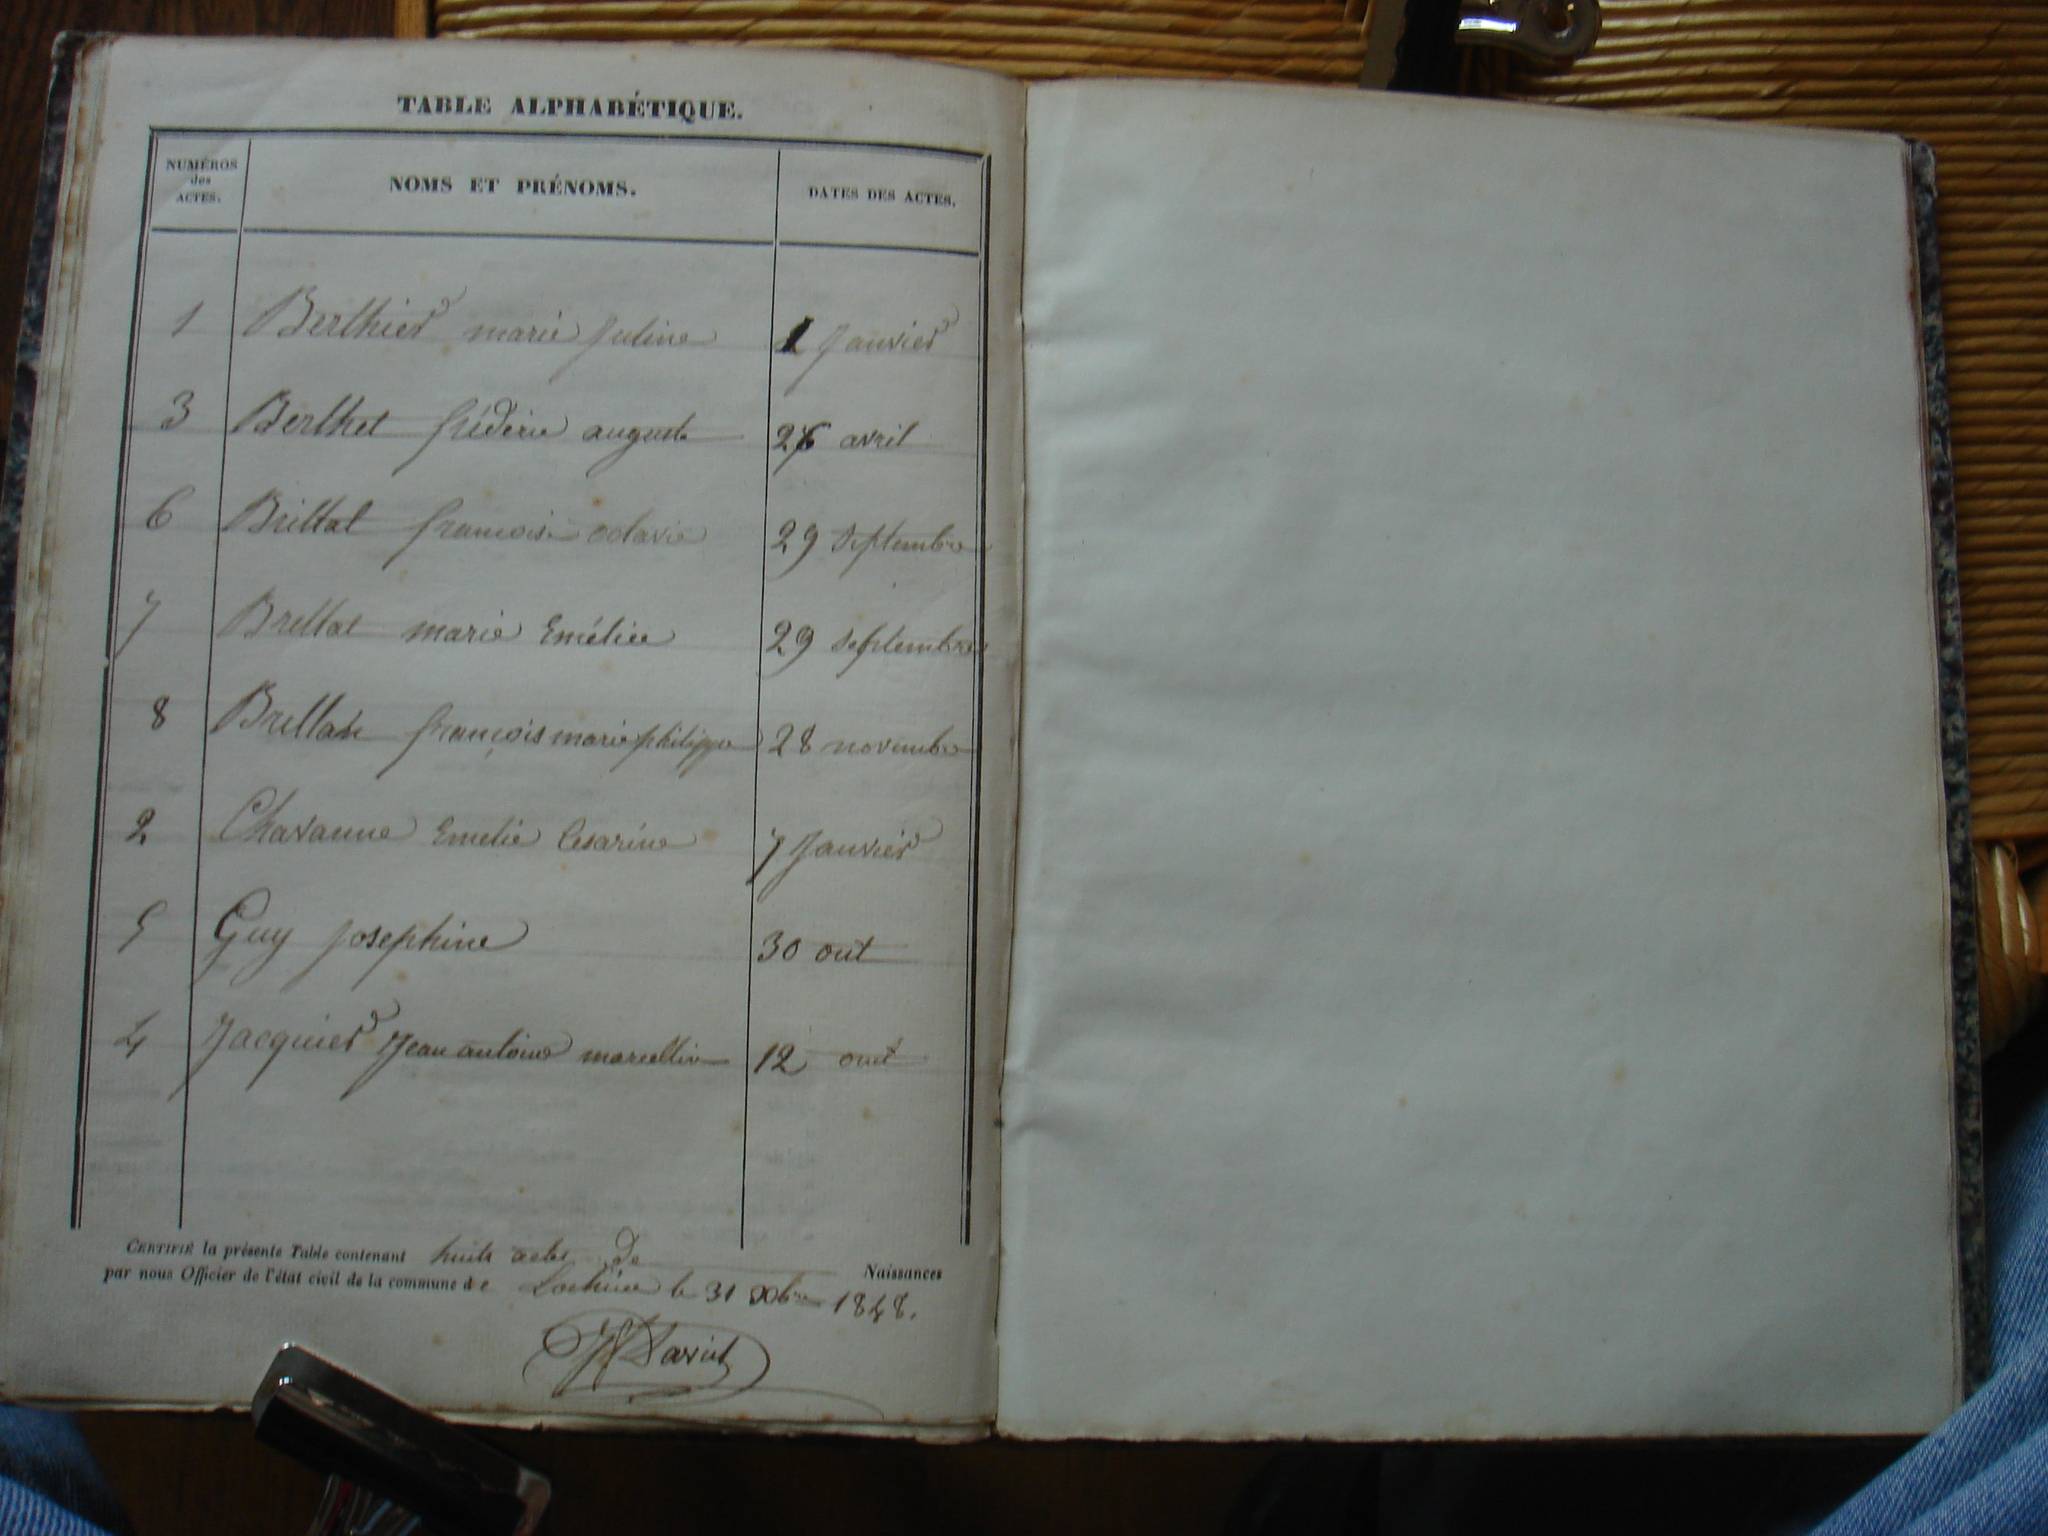 TABLE ALPHABÉTIQUE.
NUMÉROS des ACTES. NOMS ET PRÉNOMS. DATES DES ACTES.
1 Berthier marie Juline 1 Janvier
3 Berthet fréderic auguste 26 avril
6 Brellat francoise octavie 29 Septembre
7 Brellat marie Eméliee 29 septembre
8 Brellat françois marie philippe 28 novembre
2 Chavanne Emelie Cesarine 7 Janvier
5 Guy Josephine 30 out
4 Jacquier Jean antoine marcellin 12 out
CERTIFIÉ la présente Table contenant huits actes de Naissances
par nous Officier de l'état civil de la commune de le 31 Xbre 1848.